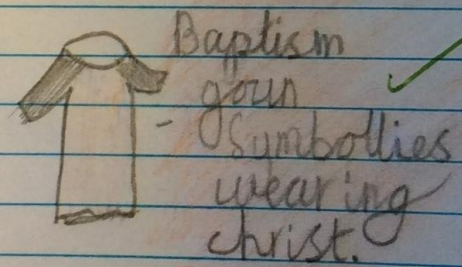 Baptism
goun
- Symbollies
wearing
christ.